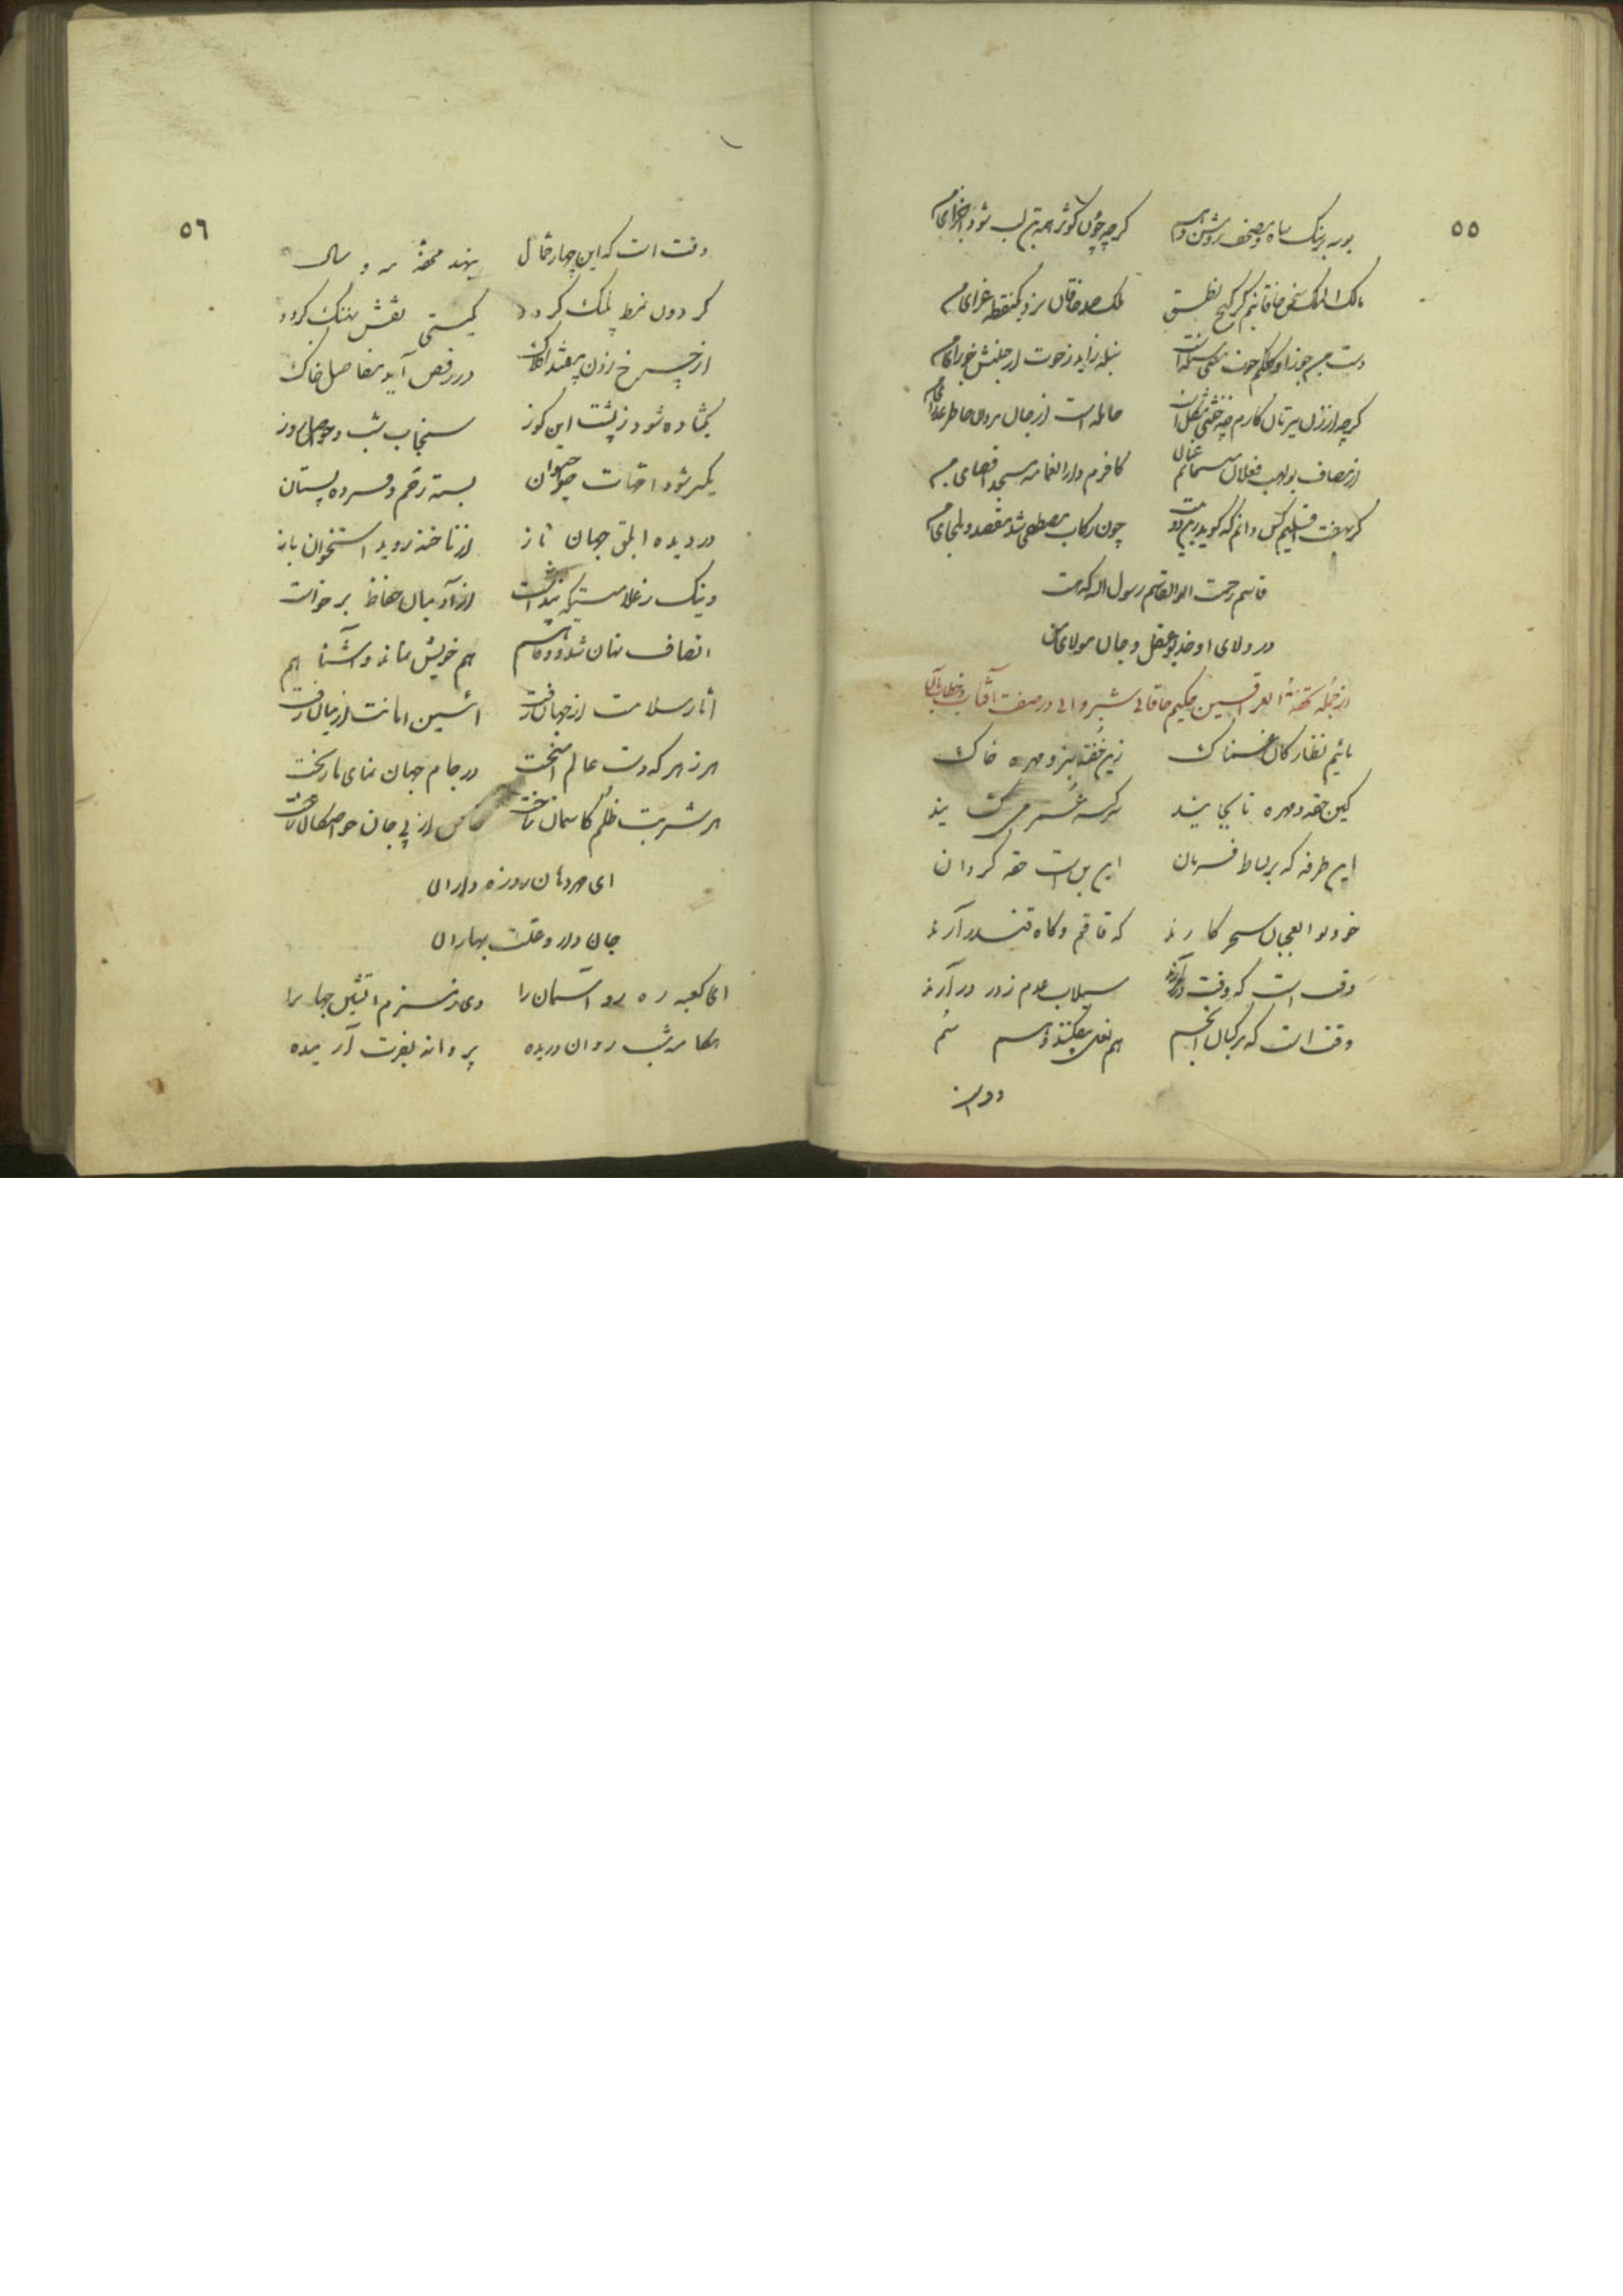 ٥٥
بوسه بر سنک سیاه و مصحف روشن دهم کرچه چون کوثر همه تن لب شود اجزای من
مالک الملک سخن خاقانیم کز کنج نطق ملک صد خاقان بود یک نقطه غرای من
دست من جوزا و کلکم حوت و معنی سنبله است سنبله زاید ز حوت از جنبش جوزای من
کرچه از زن سیرتان کارم چو خنثی مشکل است حامله است از جان مردان خاطر عذرای من
از مصاف بولهب فعلان نپیچانم عنان کافرم دان مسجد اقصای من
کر بهفت اقلیم کس دانم که کوید زین دو بیت چون رکاب مصطفی شد مقصد و ملجای من
قاسم رحمت ابوالقاسم رسول الله که هست
در ولای او خدیو عقل و جان مولای من
از جمله تحفة العراقین حکیم خاقانی شیروانی در صفت آفتاب و خطاب بآن
مائیم نظارکان غمناک زین حقه سبز و مهره خاک
کین حقه و مهره تا بجایند سر کیسه عمر می کشایند
این طرفه که بر بساط فرمان این بس است حقه کردان
خود بوالعجبان سحر کارند که قاقم و کاه قندز آرند
وقت است که وقت در سر آرند سیلاب عدم ز در در آرند
وقت است که مرکبان انجم هم نعل بیفکنند و هم سم
٥٦
وقت است که این چهار حمال بنهند محفه مه و سال
کردون نمط پلنک کردد کیتی نقش نهنک کردد
از چرخ زدن بیفتد افلاک در رقص آید مفاصل خاک
بکشاده شود ز پشت این کوز سنجاب شب و حواصل روز
یکسر شود امهات حیوان بسته رحم و فسرده پستان
در دیده ابلق جهان تاز از ناخنه روید استخوان باز
وینک ز علامتیکه پیداست از آدمیان حفاظ برخواست
انصاف نهان شد و وفا هم هم خویش نماند و آشنا هم
آثار سلامت از جهان رفت آئین امانت از میان رفت
هر زهر که دست عالم آمیخت در جام جهان نمای ما ریخت
هر شربت ظلم کاسمان ساخت از پی جان خواصکان ساخت
ای مردمان روزه داران
جان دارو علت بهاران
ای کعبه ره رو آسمان را وی زمزم آتشین جهان را
هنکامه شب روان دریده پروانه بفرت آرمیده